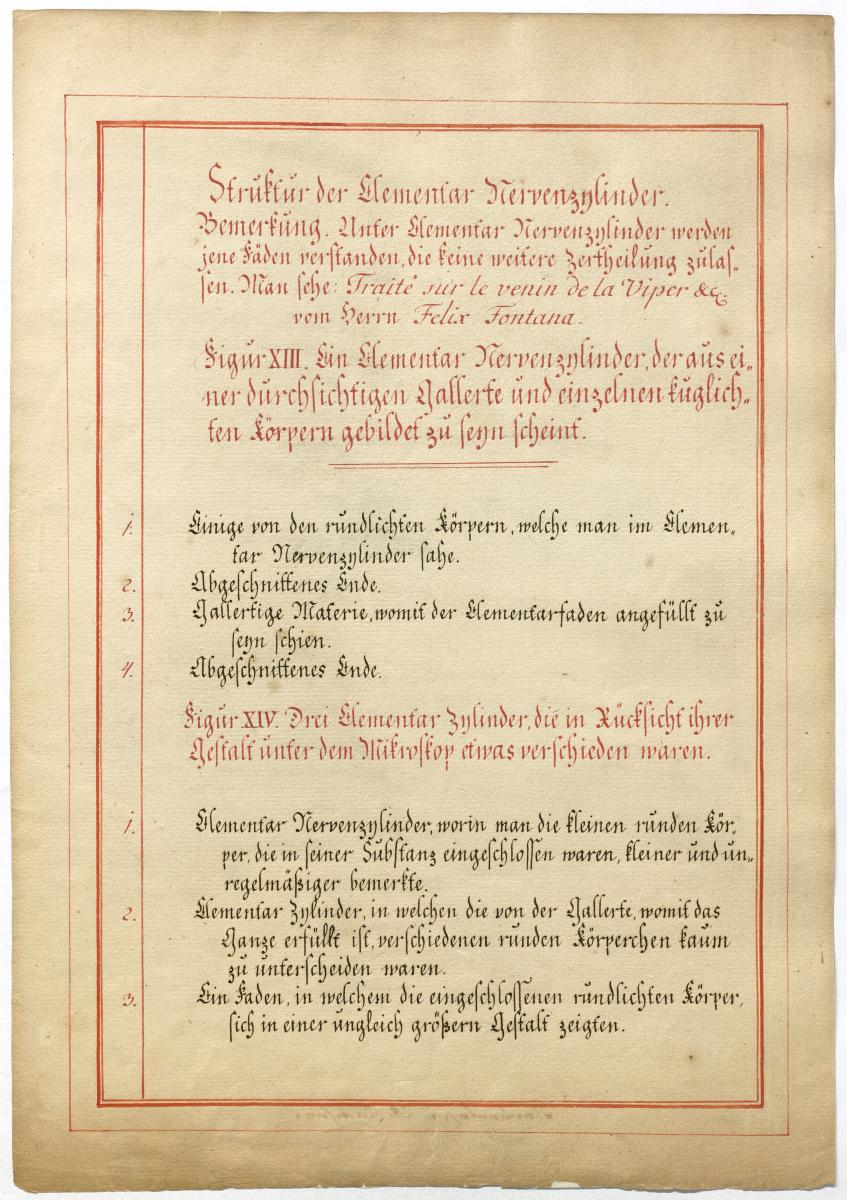 Struktur der Elementar Nervenzylinder.
Bemerkung. Unter Elementar Nervenzylinder werden
jene Fäden verstanden, die keine weitere Zertheilung zulas„
sen. Man sehe: Traité sur le venin de la Viper &c
vom Herrn Felix Fontana.
Figur XIII. Ein Elementar Nervenzylinder, der aus ei„
ner durchsichtigen Gallerte und einzelnen kuglich„
ten Körpern gebildet zu seyn scheint.
1. Einige von den rundlichten Körpern, welche man im Elemen„
tar Nervenzylinder sahe.
2. Abgeschnittenes Ende.
3. Gallertige Materie, womit der Elementarfaden angefüllt zu
seyn schien.
4. Abgeschnittenes Ende.
Figur XIV. Drei Elementar Zylinder, die in Rücksicht ihrer
Gestalt unter dem Mikroskop etwas verschieden waren.
1. Elementar Nervenzylinder, worin man die kleinen runden Kör„
per, die in seiner Substanz eingeschlossen waren, kleiner und un„
regelmäßiger bemerkte.
2. Elementar Zylinder, in welchen die von der Gallerte, womit das
Ganze erfüllt ist, verschiedenen runden Körperchen kaum
zu unterscheiden waren.
3. Ein Faden, in welchem die eingeschlossenen rundlichten Körper,
sich in einer ungleich größern Gestalt zeigten.